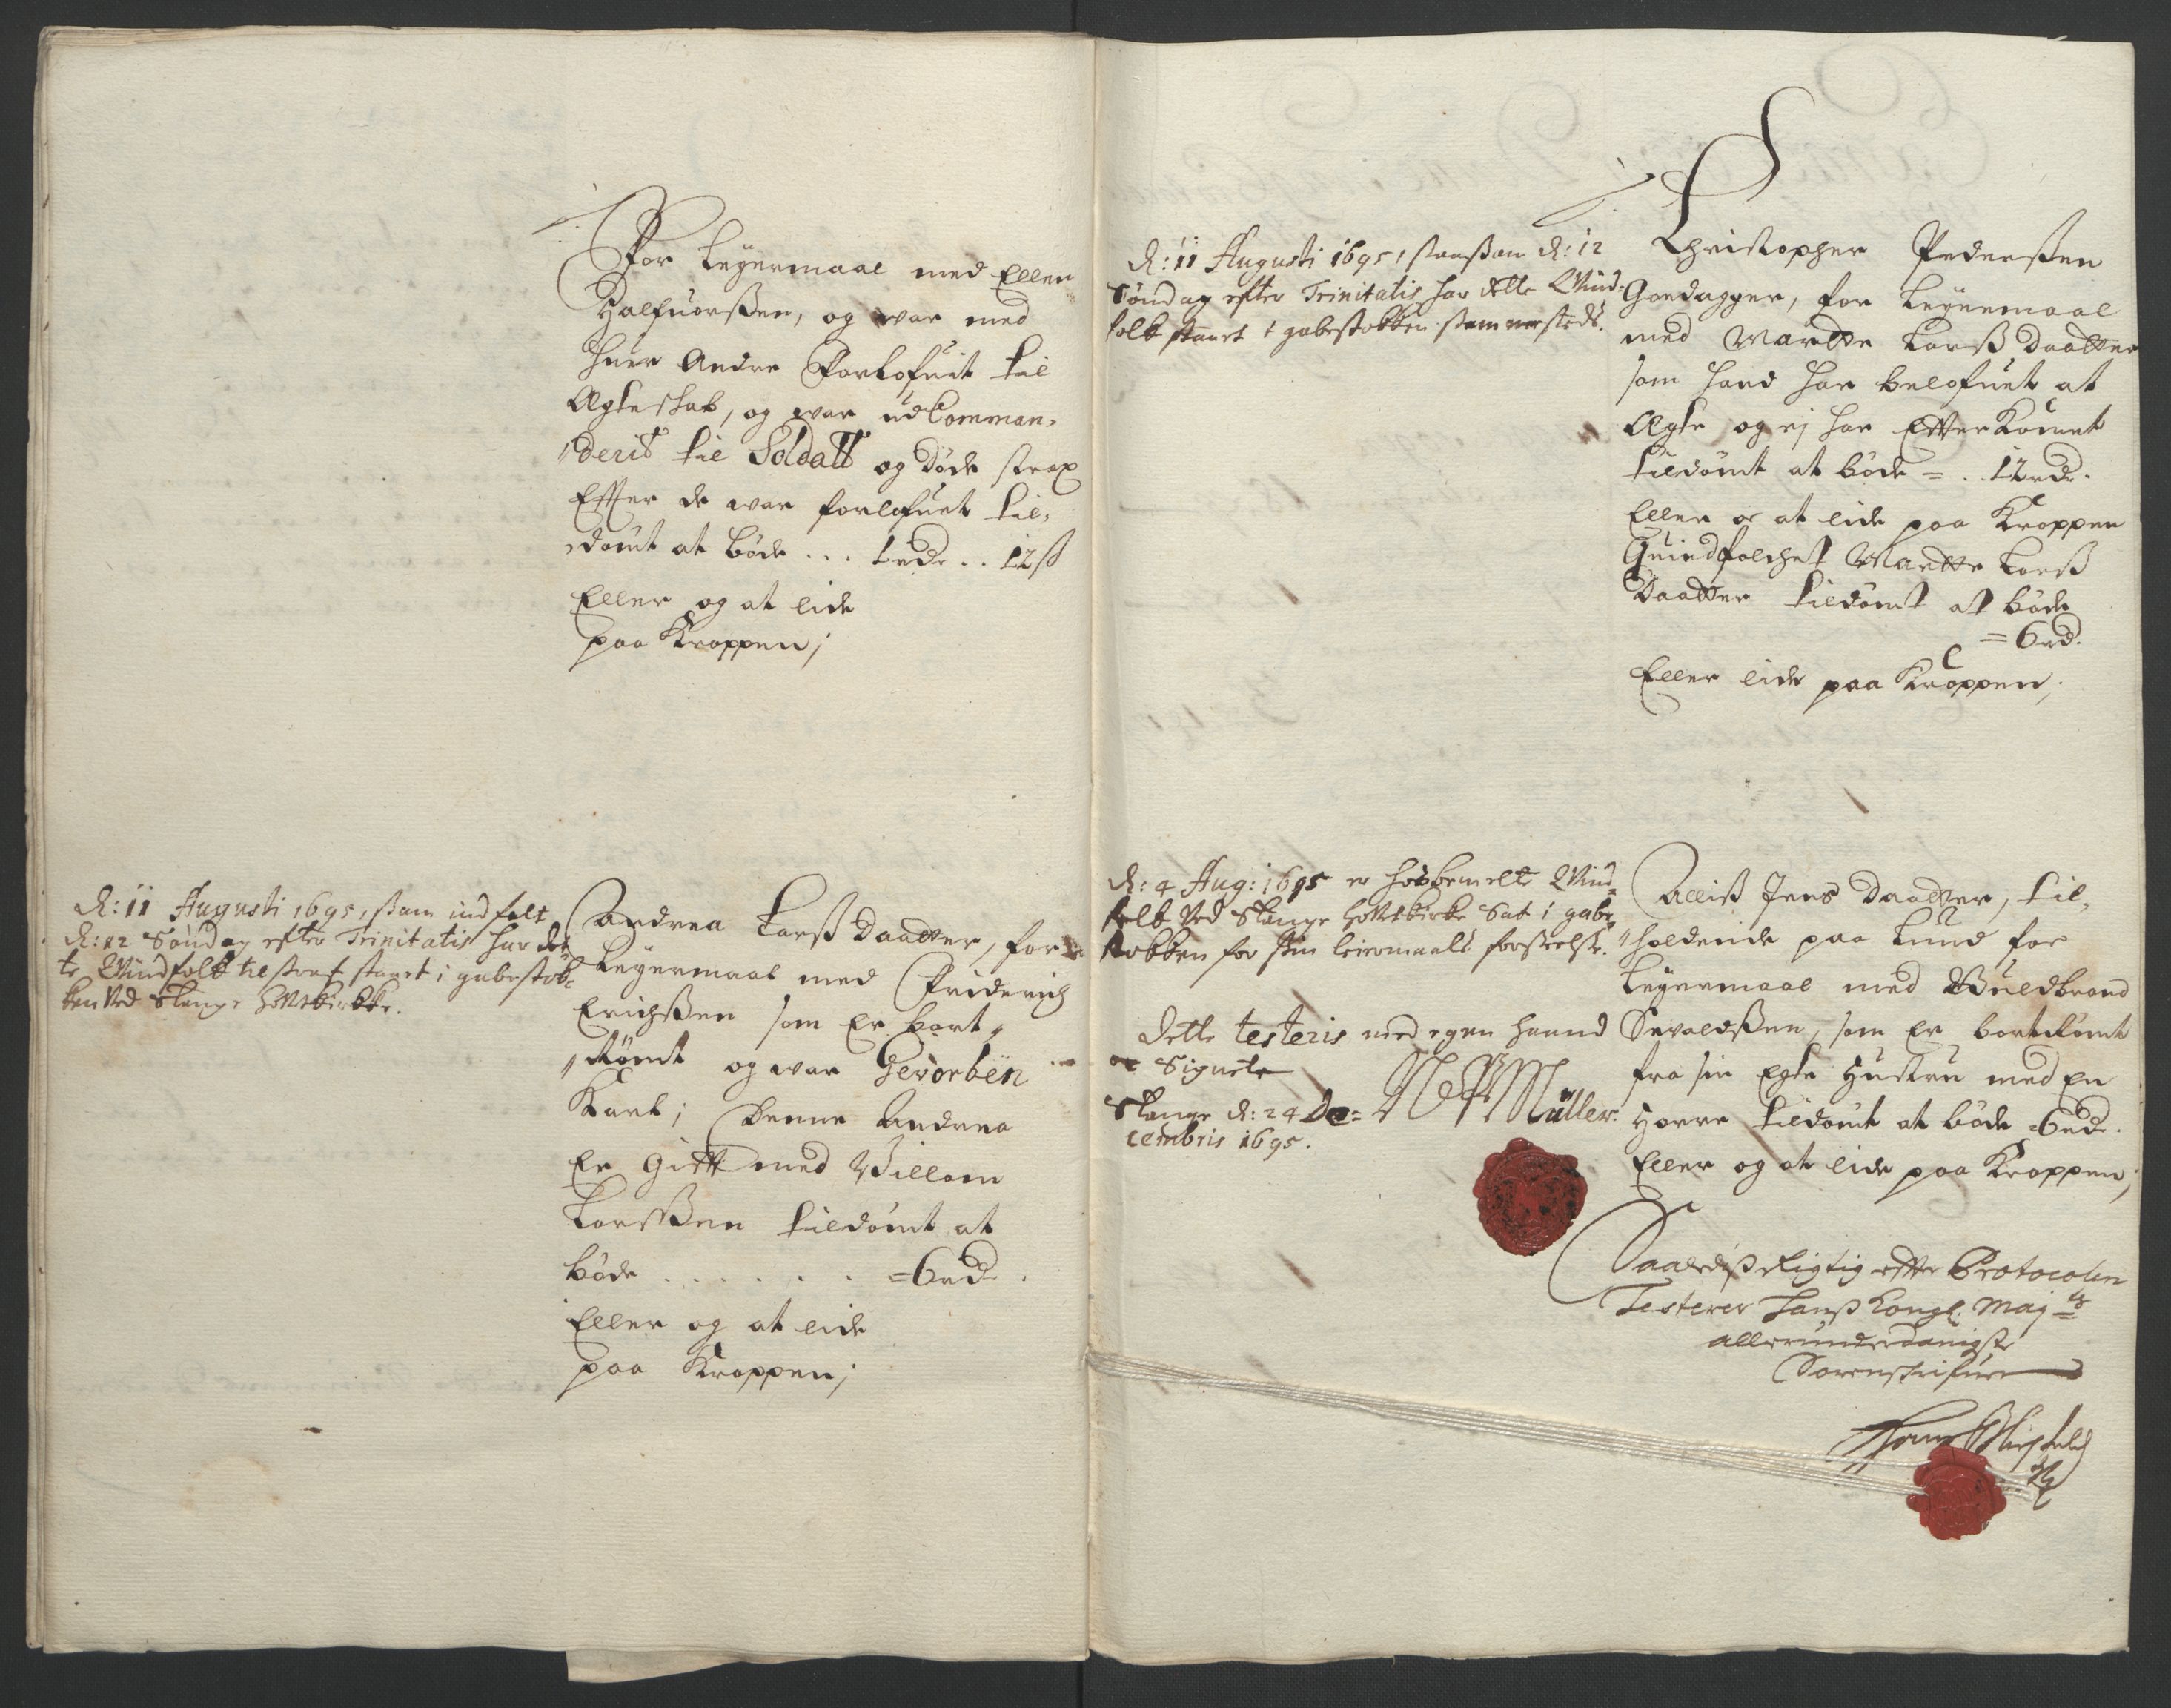 For Leyermaal med Ellen
Halfuorßen, og war med
huer Andre Forlofuit til
Ægteschab, og war udComman-
derit til Soldatt og Døde strax
Efter de war forlofuet til-
dømt at bøde ... 1 rdr .. 12 ß
Eller og at lide
paa Kroppen;
D: 11 Augusti 1695, som indfalt
D: 12 Søndag efter Trinitatis har det-
te Quindfolk til straf staaet i gabestok-
ken ved Stange Hovetkirke.
Andrea Larß Daatter, for
Leyermaal med Friderich
Erichßen som Er bort-
Rømt og war Geworben
Karl; Denne Andrea
Er Gift med Willom
Larßen tildømt at
bøde . . . . . . = 6 rdr.
Eller og at lide
paa Kroppen;
D: 11 Augusti 1695, D: 12
Søndag efter Trinitatis har dette Quind-
folk staaet i gabestokken sammesteds.
Christopher Pederßen
for Leyermaal
med Marthe Larß Daatter
som hand har belofuet at
Ægte og ej har Efterkomet
tildømt at bøde = . 12 rdr.
Eller oc at lide paa Kroppen
Quindfolchet Marthe Larß
Daatter tildømt at bøde
= 6 rd.
Eller lide paa Kroppen;
D: 4 Aug: 1695 er hosbemelte Quind-
folk ved Stange Hovetkirke Sat i gabe-
stokken for sin leiermaals forseelse.
Dette testeris med egen haand
oc Signete
Stange d: 24 De-
cembris 1695.
Müller.
Alliß Jens Daatter, til-
holdende paa Lund for
Leyermaal med Guldbrand
Sevaldßen, som Er bortRømt
fra sin Egte Hustru med En
Horre tildømt at bøde = 6 rdr.
Eller og at lide paa Kroppen;
Saaledis Rigtig efter Protocolen
Testerer Hanß Kongl. Maj ts
allerunderdanigste
Sorenskrifuer